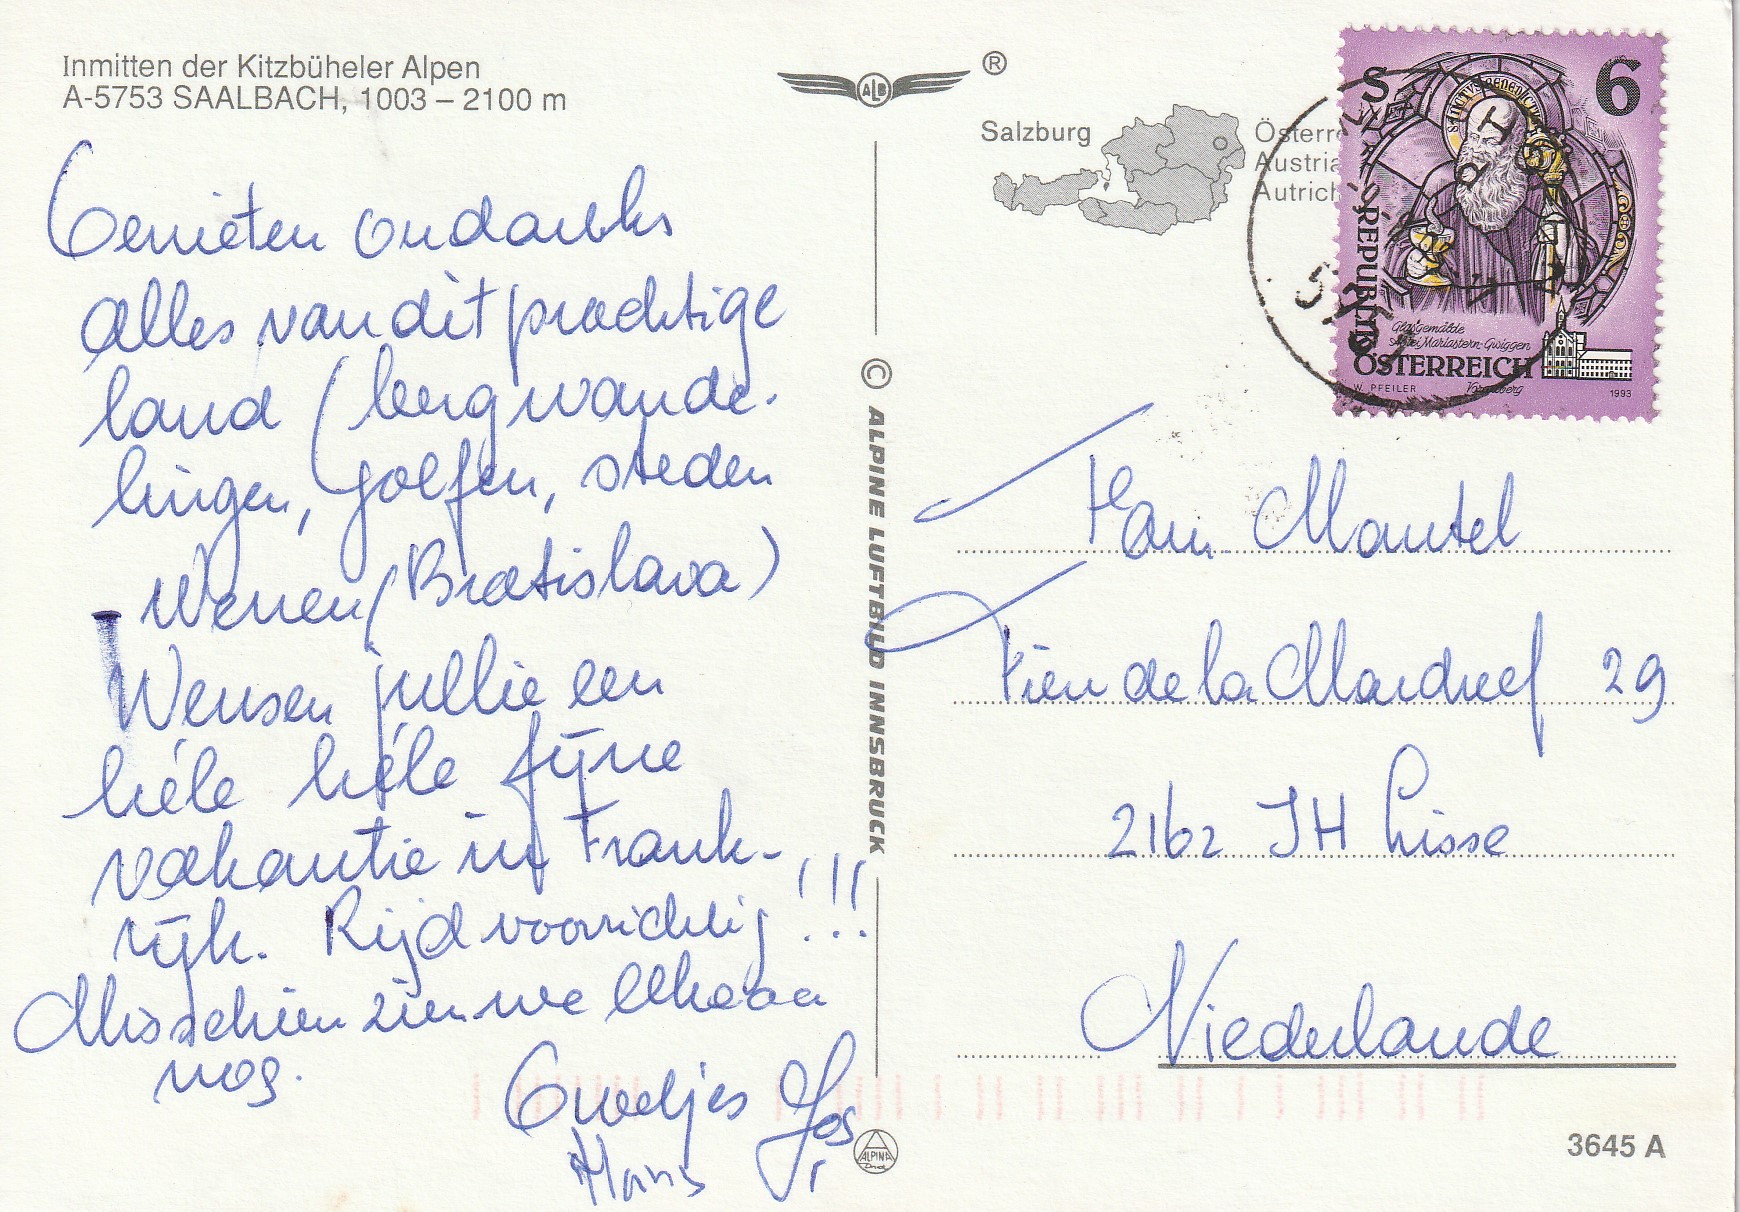 Inmitten der Kitzbüheler Alpen
A-5753 SAALBACH, 1003 – 2100 m
Genieten ondanks
alles van dit prachtige
land (bergwande-
lingen, golfen, steden
Wenen/Bratislava)
Wensen jullie een
héle héle fijne
vakantie in Frank-
rijk. Rijd voorzichtig!!!
Misschien zien we elkaar
nog.
Groetjes Jos
Hans
ALB
®
Salzburg
Österre
Austria
Autrich
© ALPINE LUFTBILD INNSBRUCK
S 6
SANCTVS BENEDICTVS
REPUBLIK
ÖSTERREICH
Glasgemälde
Abtei Mariastern-Gwiggen
Vorarlberg
W. PFEILER
1993
Fam. Mantel
de la Mardreef 29
2162 JH Lisse
Niederlande
ALPINA
Druck
3645 A